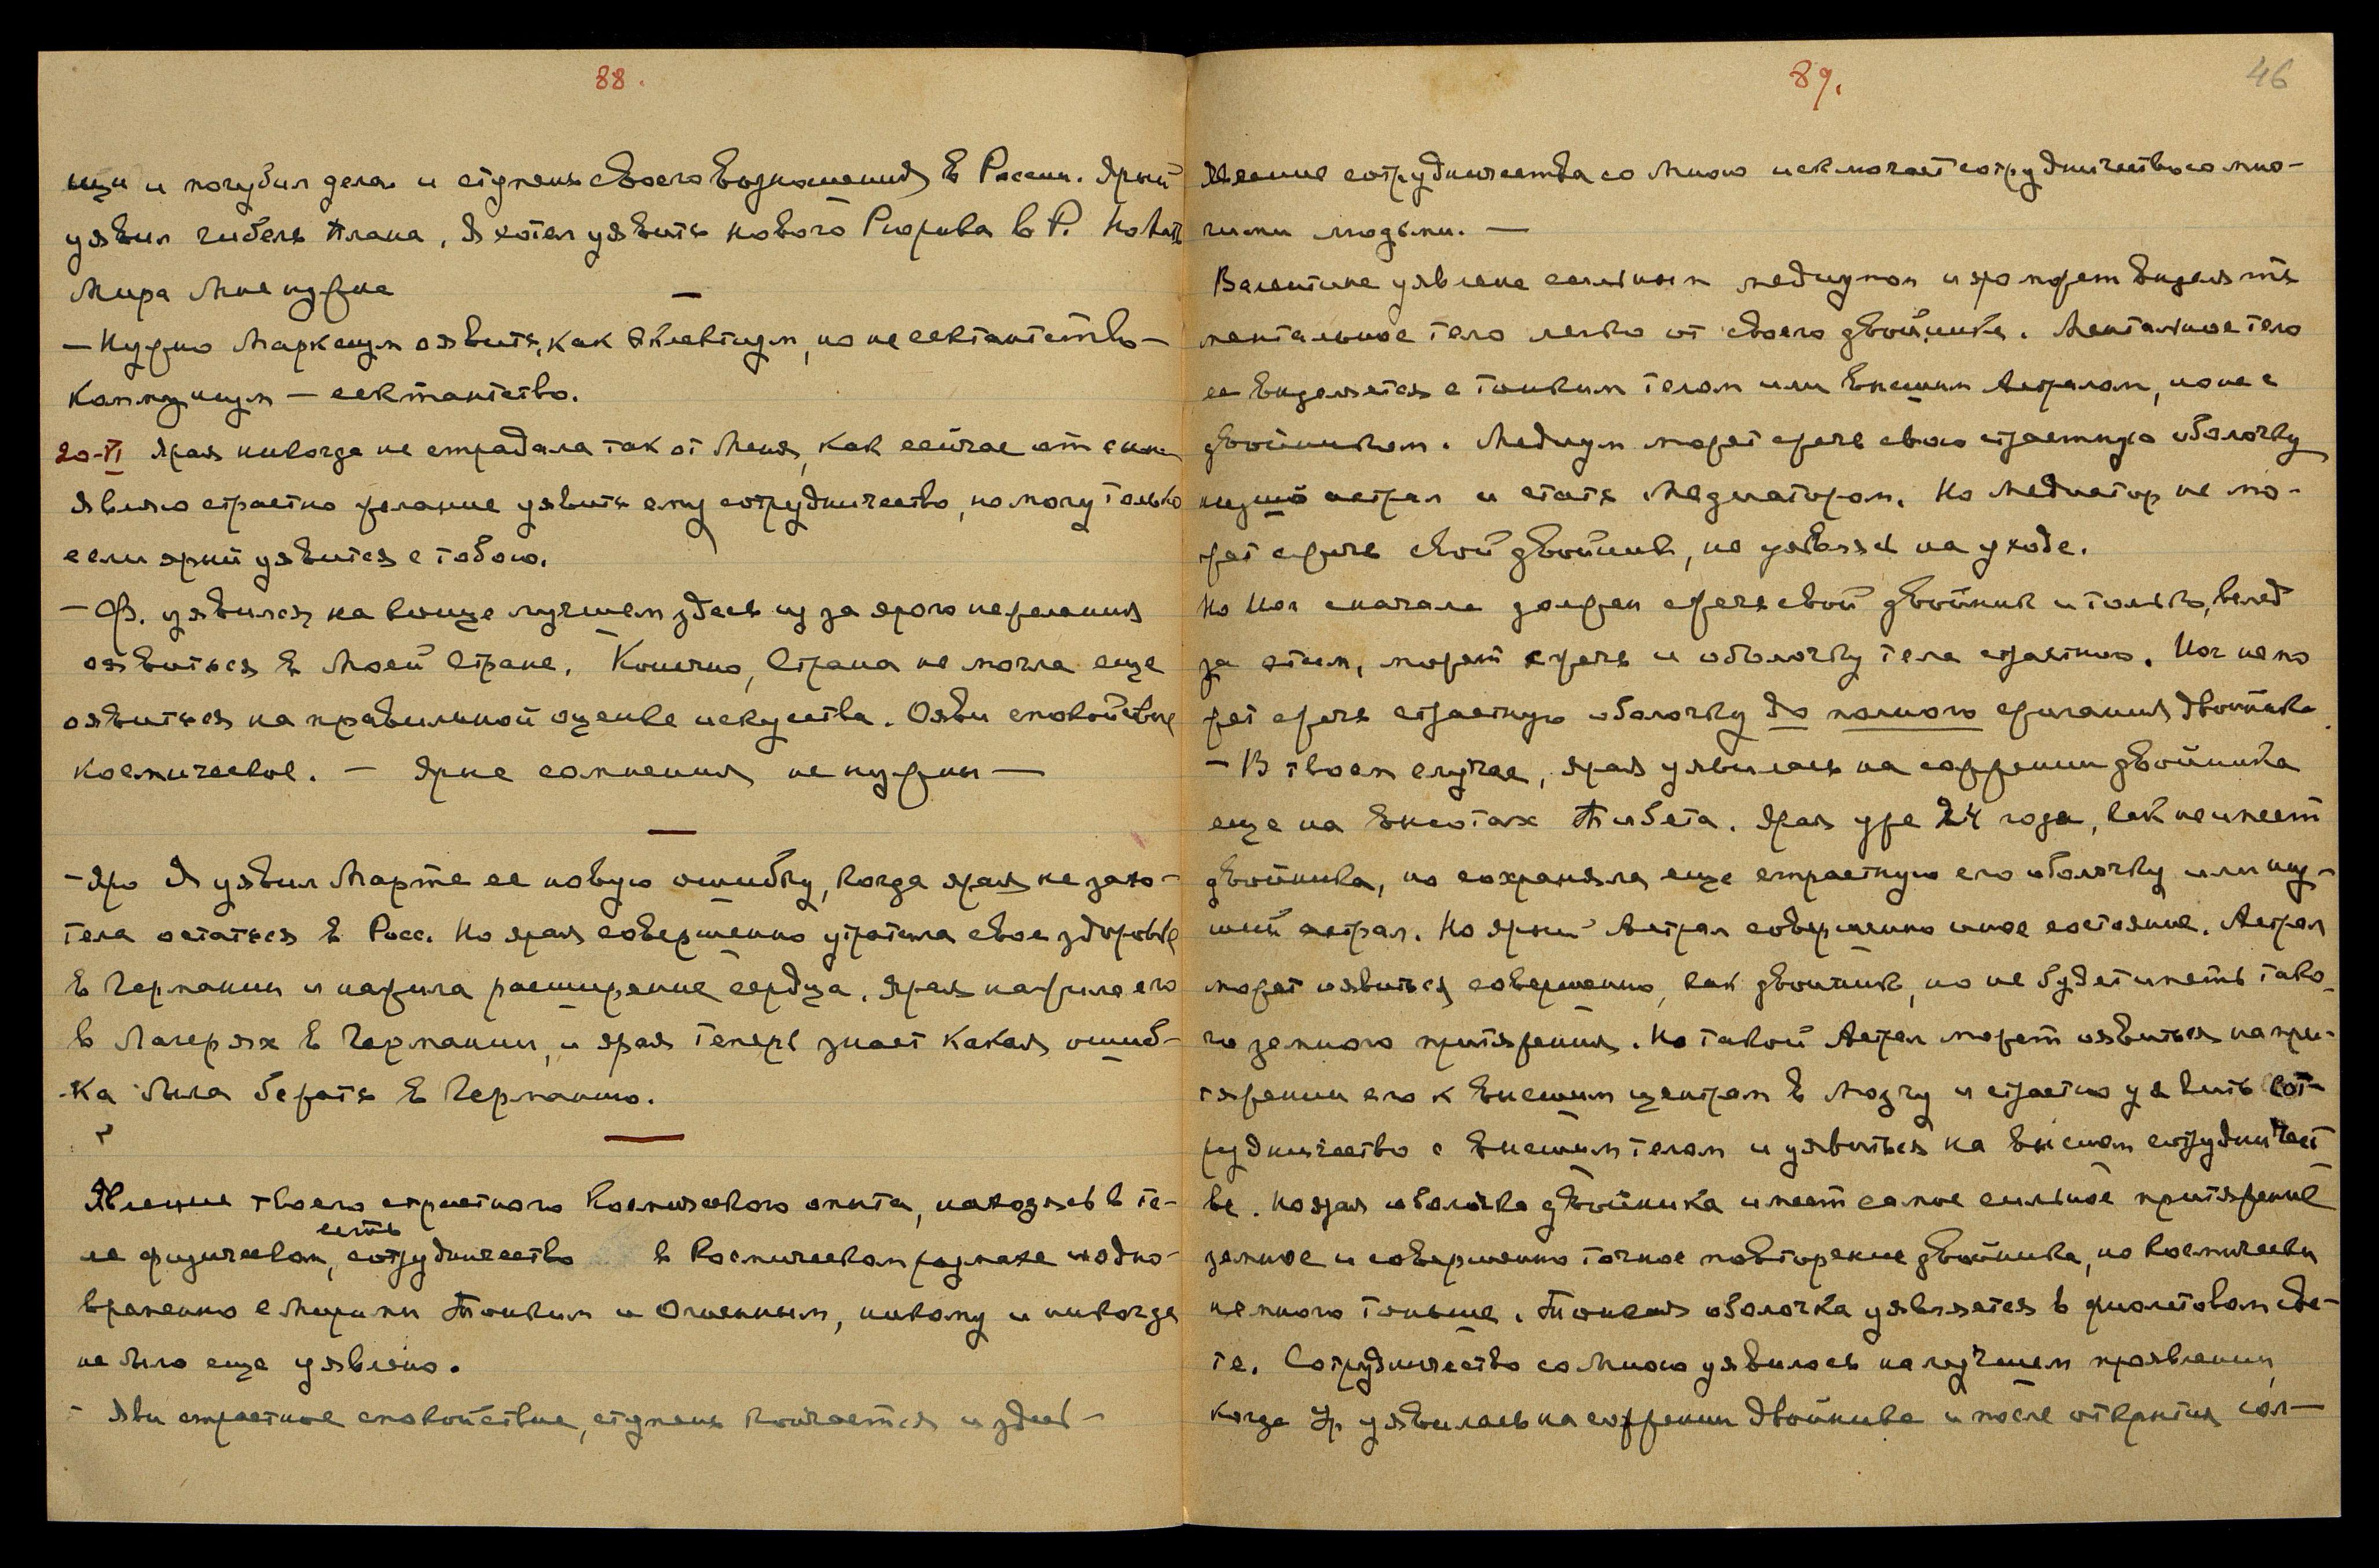 88.
щи и погубил дела и ступень своего возношения в России. Ярый
уявил гибель Плана, Я хотел уявить нового Рюрика в Р. Но Мать
Мира Мне нужна
— Нужно Марксизм оявить, как эклектизм, но не сектантство —
Коммунизм — сектантство.
20-VI Ярая никогда не страдала так от Меня, как сейчас от сына
Являю страстно желание уявить ему сотрудничество, но могу только
если ярый уявится с тобою.
— Ф. уявился на конце лучшем здесь из за ярого нежелания
оявиться в Моей Стране. Конечно, Страна не могла еще
оявиться на правильной оценке искусства. Ояви спокойствие
космическое. — Ярые сомнения не нужны —
— Яро Я уявил Марте ее новую ошибку, когда ярая не захо-
тела остаться в Росс. Но ярая совершенно утратила свое здоровье
в Германии и нажила расширение сердца. Ярая нажила его
в Лагерях в Германии, и ярая теперь знает какая ошиб-
ка была бежать в Германию.
Явление твоего страстного Космического опыта, находясь в те-
есть
ле физическом, сотрудничество в Космическом размахе и одно-
временно с Мирами Тонким и Огненным, никому и никогда
не было еще уявлено.
- Яви страстное спокойствие, ступень кончается и здесь —
89.
46
Явление сотрудничества со Мною исключает сотрудничество со мно-
гими людьми. —
Валентина уявлена сильным медиумом и яро может выделять
ментальное тело легко от своего двойника. Ментальное тело
ее выделяется с тонким телом или высшим Астралом, но не с
двойником. Медиум может сжечь свою страстную оболочку
низший астрал и стать Медиатором. Но Медиатор не мо-
жет сжечь свой двойник, не уявляясь на уходе.
Но Йог сначала должен сжечь свой двойник и только, вслед
за этим, может сжечь и оболочку тела страстного. Йог не мо
жет сжечь страстную оболочку до полного сжигания двойника.
— В твоем случае, ярая уявилась на сожжении двойника
еще на высотах Тибета. Ярая уже 24 года, как не имеет
двойника, но сохраняла еще страстную его оболочку или низ-
ший астрал. Но ярый Астрал совершенно иное состояние. Астрал
может оявиться совершенно, как двойник, но не будет иметь тако-
го земного притяжения. Но такой Астрал может оявиться на при-
тяжении его к высшим центрам в мозгу и страстно уявить сот-
рудничество с высшим телом и уявиться на высшем сотрудничест
ве. Но ярая оболочка двойника имеет самое сильное притяжение
земное и совершенно точное повторение двойника, но космически
немного тоньше. Тонкая оболочка уявляется в фиолетовом све-
те. Сотрудничество со Мною уявилось на лучшем проявлении,
когда Ур. уявилась на сожжении двойника и после открытия сол-